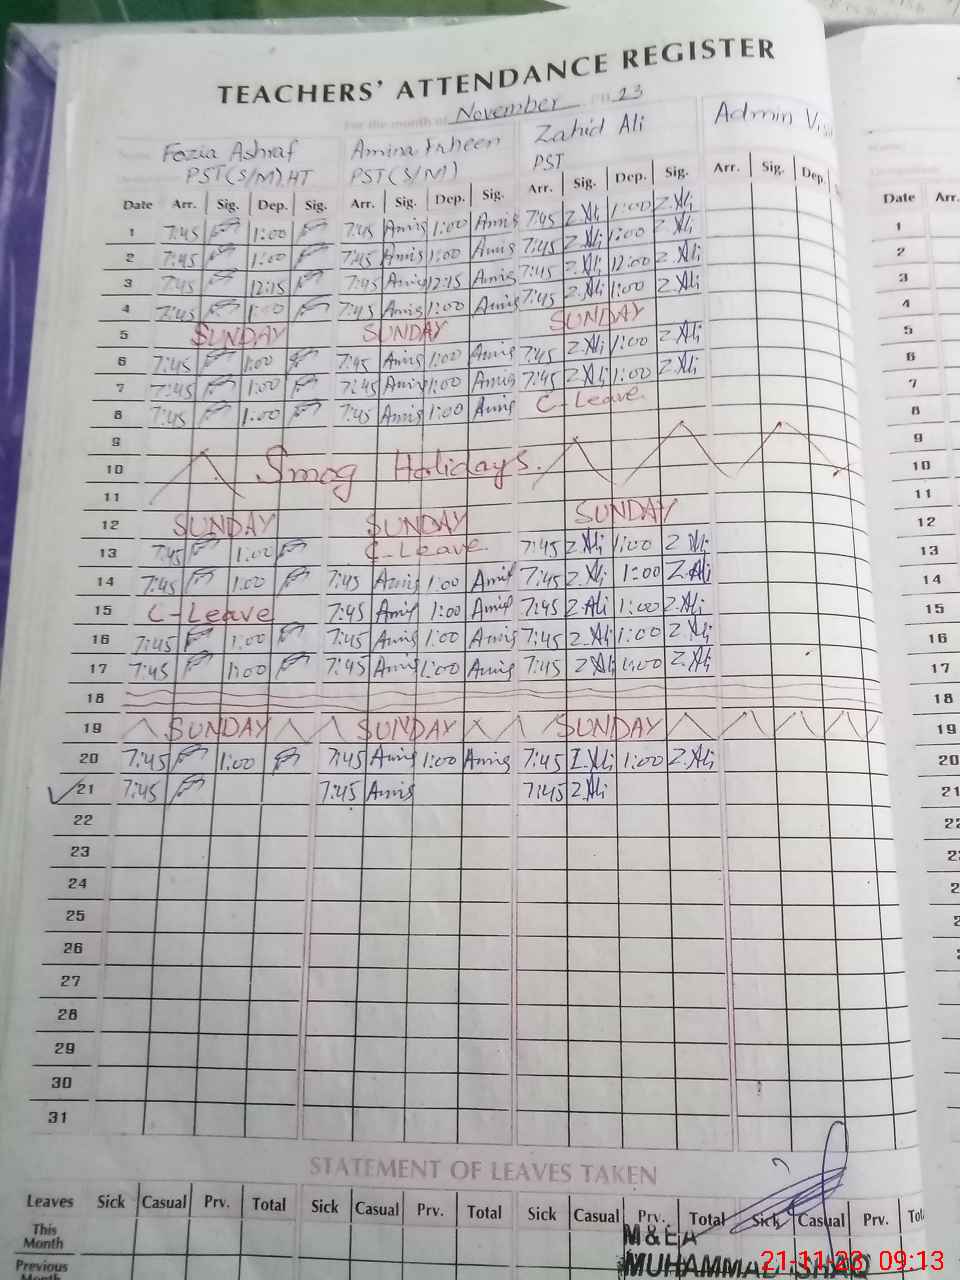 TEACHERS' ATTENDANCE REGISTER
For the month of November 23
Fozia Ashraf Amina Zahid Ali Admin
PST(S/M).HT PST(S/M) PST
Date Arr. Sig. Dep. Sig. Arr. Sig. Dep. Sig. Arr. Sig. Dep. Sig. Arr. Sig. Dep. Date Arr.
1 7:45 1:00 7:45 Amis 1:00 Amis 7:45 Z.Ali 1:00 Z.Ali 1
2 7:45 1:00 7:45 Amis 1:00 Amis 7:45 Z.Ali 1:00 Z.Ali 2
3 7:45 12:15 7:45 Amis 12:15 Amis 7:45 Z.Ali 12:00 Z.Ali 3
4 7:45 1:00 7:45 Amis 1:00 Amis 7:45 Z.Ali 1:00 Z.Ali 4
5 SUNDAY SUNDAY SUNDAY 5
6 7:45 1:00 7:45 Amis 1:00 Amis 7:45 Z.Ali 1:00 Z.Ali 6
7 7:45 1:00 7:45 Amis 1:00 Amis 7:45 Z.Ali 1:00 Z.Ali 7
8 7:45 1:00 7:45 Amis 1:00 Amis C-Leave 8
9 9
10 Smog Holidays. 10
11 11
12 SUNDAY SUNDAY SUNDAY 12
13 7:45 1:00 C-Leave 7:45 Z.Ali 1:00 Z.Ali 13
14 7:45 1:00 7:45 Amis 1:00 Amis 7:45 Z.Ali 1:00 Z.Ali 14
15 C-Leave 7:45 Amis 1:00 Amis 7:45 Z.Ali 1:00 Z.Ali 15
16 7:45 1:00 7:45 Amis 1:00 Amis 7:45 Z.Ali 1:00 Z.Ali 16
17 7:45 1:00 7:45 Amis 1:00 Amis 7:45 Z.Ali 1:00 Z.Ali 17
18 18
19 SUNDAY SUNDAY SUNDAY 19
20 7:45 1:00 7:45 Amis 1:00 Amis 7:45 Z.Ali 1:00 Z.Ali 20
21 7:45 7:45 Amis 7:45 Z.Ali 21
22
23
24
25
26
27
28
29
30
31
STATEMENT OF LEAVES TAKEN
Leaves Sick Casual Prv. Total Sick Casual Prv. Total Sick Casual Prv. Total Sick Casual Prv.
This Month
M&EA
Previous Month
MUHAMMAD ISHAQ
21-11-23 09:13